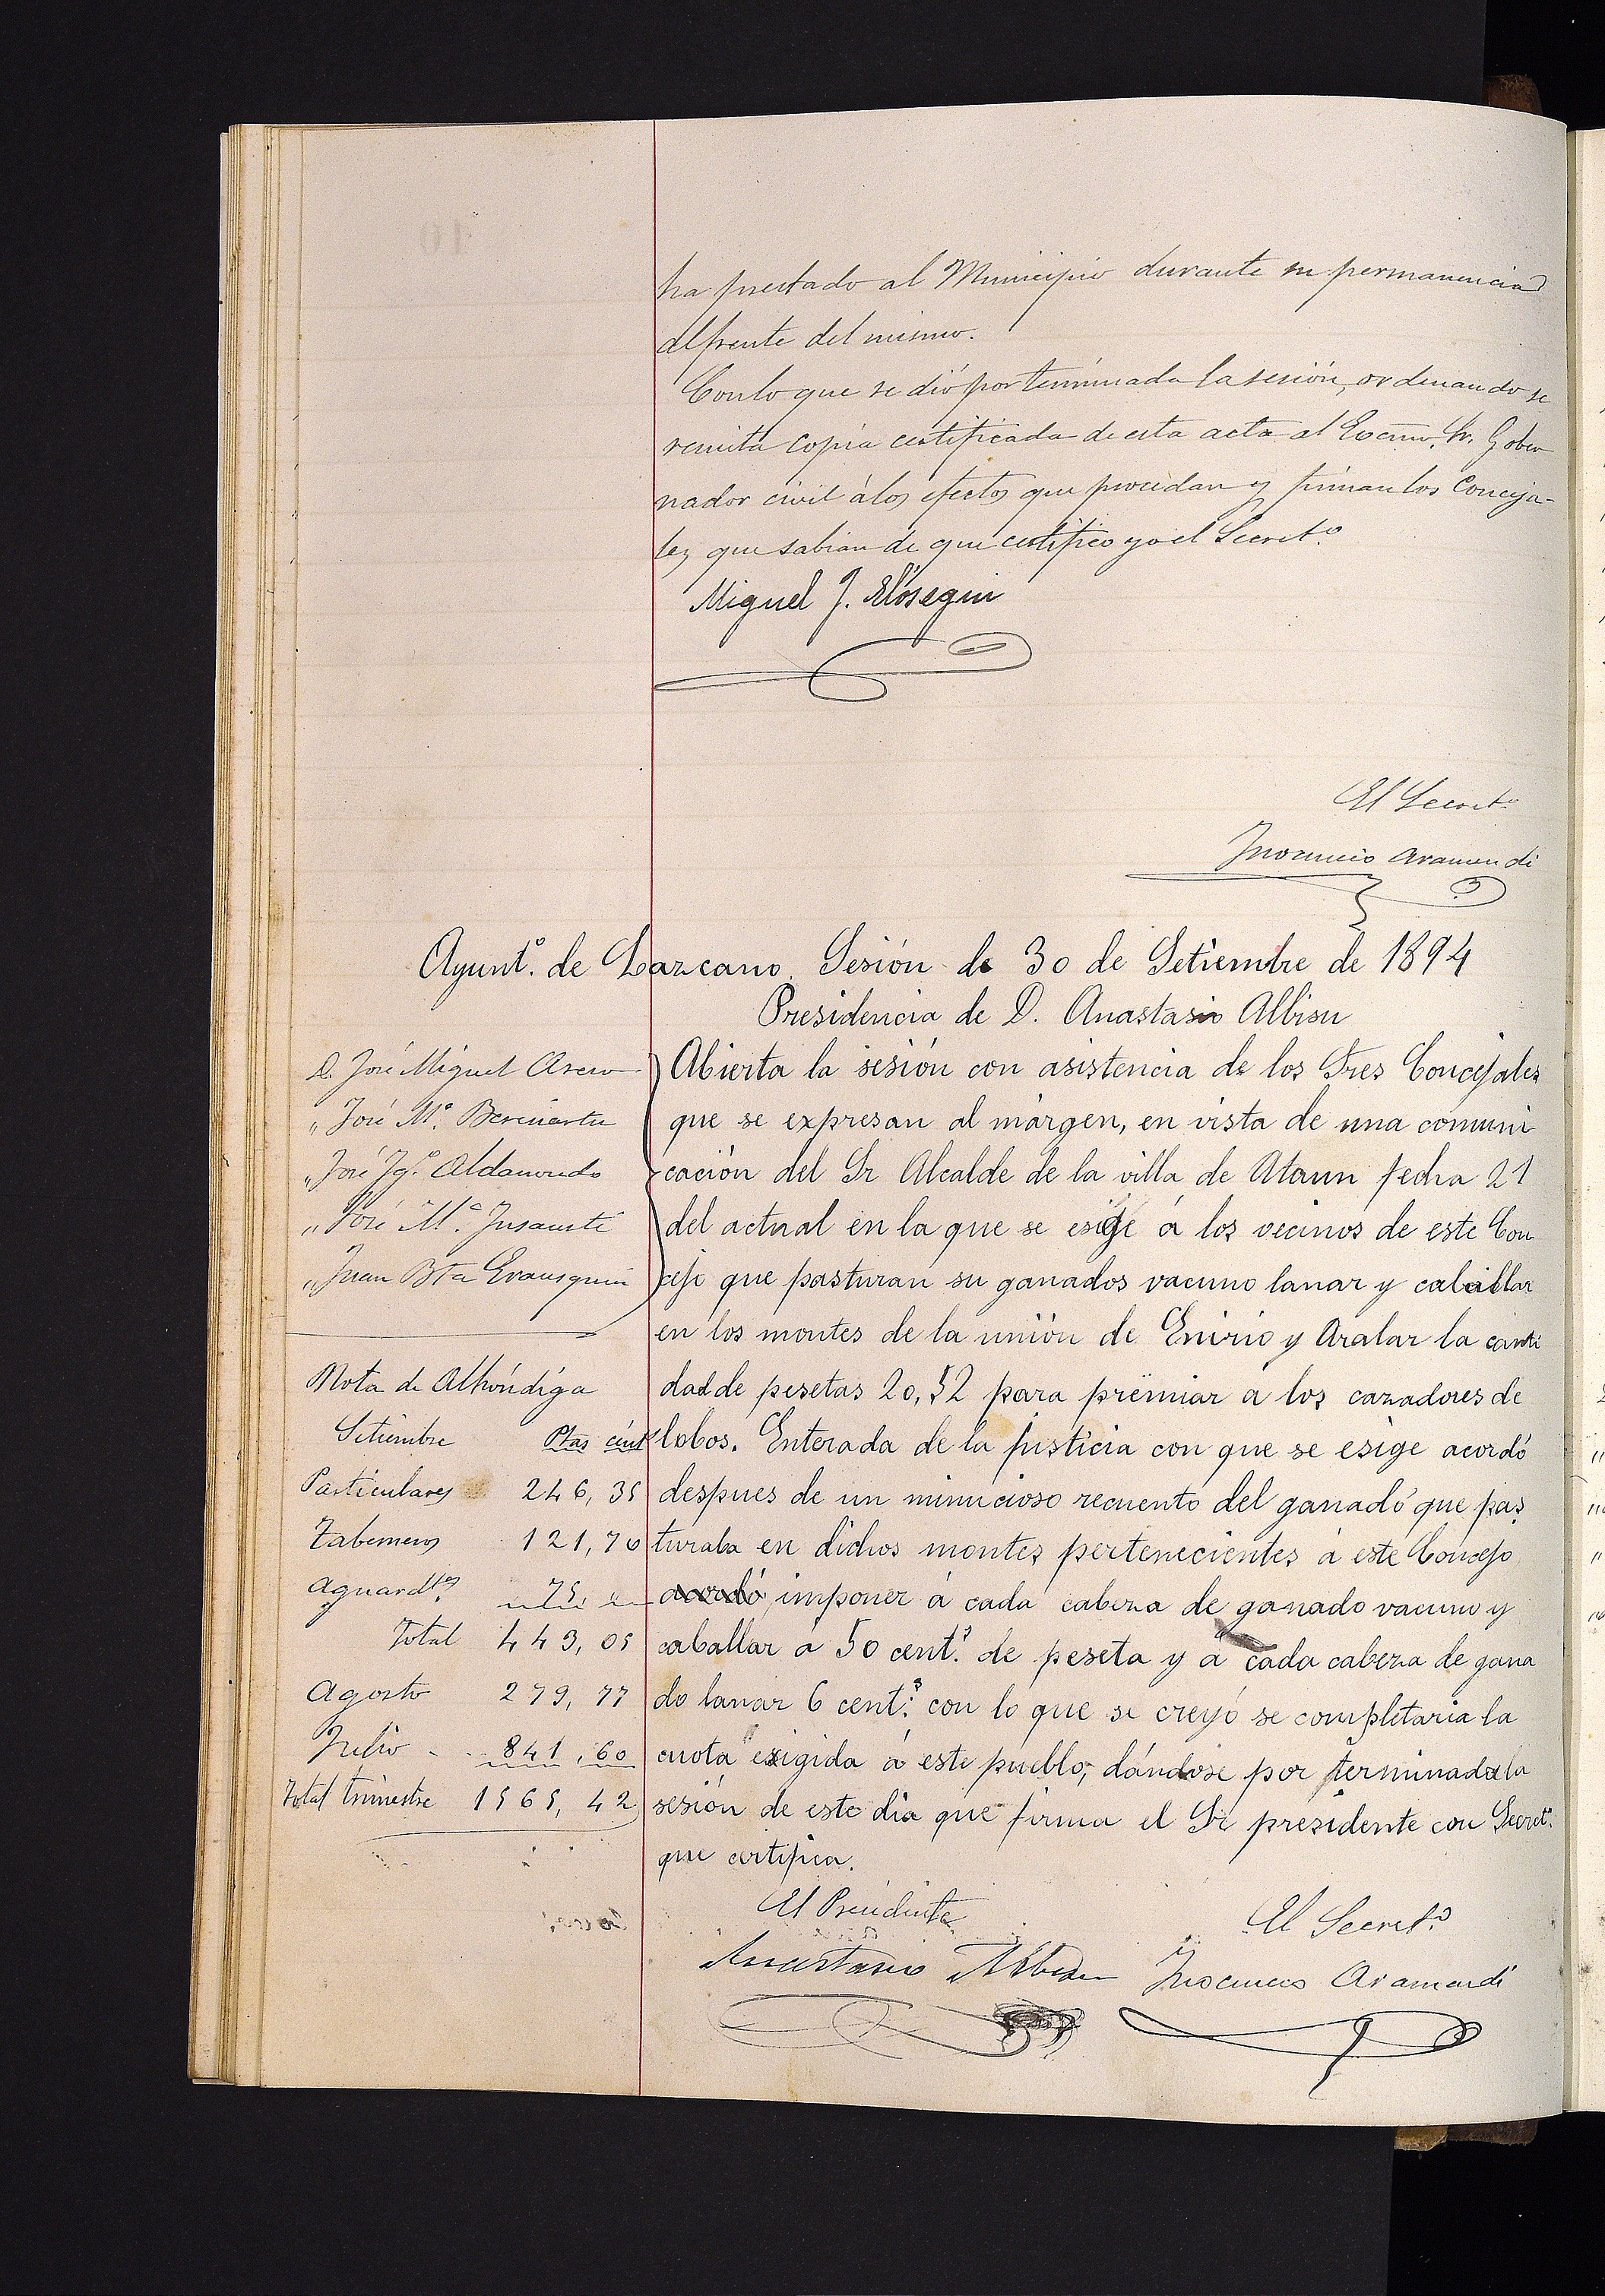 ha prestado al Municipio durante su permanencia
al frente del mismo.
Con lo que se dió por terminada la sesión, ordenando se
remita copia certificada de esta acta al Excmo. Sr. Gober
nador civil á los efectos que procedan y firman los Conceja-
les que sabian de que certifico yo el Secret.º
Miguel J. Elósegui
El Secret.º
Inocencio Aramendi
Ayunt.º de Lazcano. Sesión de 30 de Setiembre de 1894
Presidencia de D. Anastasio Albisu
D. José Miguel
„ José M.ª
„ José Ig.º Aldamondo
„ José M.ª Insausti
„ Juan Bta Erausquin
Abierta la sesión con asistencia de los Sres Concejales
que se expresan al márgen, en vista de una comuni
cación del Sr Alcalde de la villa de Ataun fecha 21
del actual en la que se esige á los vecinos de este Con
cejo que pasturan su ganados vacuno lanar y caballar
en los montes de la unión de Enirio y Aralar la canti
dad de pesetas 20,52 para premiar a los cazadores de
lobos. Enterada de la justicia con que se esige acordó
despues de un minucioso recuento del ganado que pas
turaba en dichos montes pertenecientes á este Concejo
acordó imponer á cada cabeza de ganado vacuno y
caballar á 50 cent.s de peseta y á cada cabeza de gana
do lanar 6 cent.s con lo que se creyó se completaria la
cuota exigida á este pueblo, dándose por terminada la
sesión de este dia que firma el Sr presidente con Secret.º
que certifica.
Nota de Alhóndiga
Setiembre Ptas cént
Particulares 246,35
Taberneros 121,70
Aguardtes 75, „
Total 443,05
Agosto 279,77
Julio - .. 841,60
Total trimestre 1565,42
El Presidente
Anastasio Albisu
El Secret.º
Inocencio Aramendi